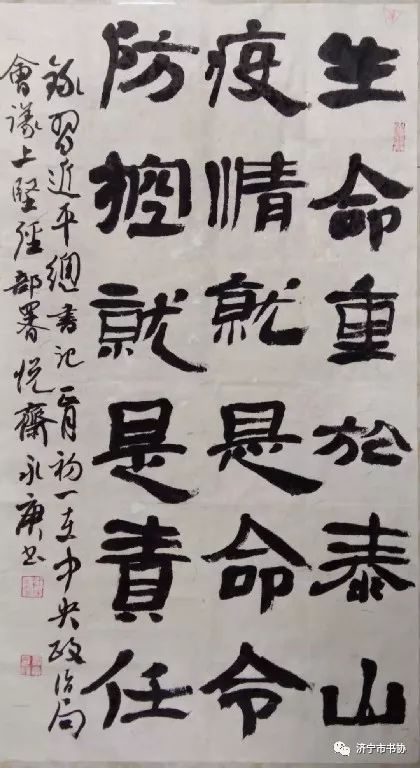 生命重於泰山
疫情就是命令
防控就是責任
錄習近平總書记正月初一在中央政治局
會議上堅强部署悦齋永庚书
济宁市书协